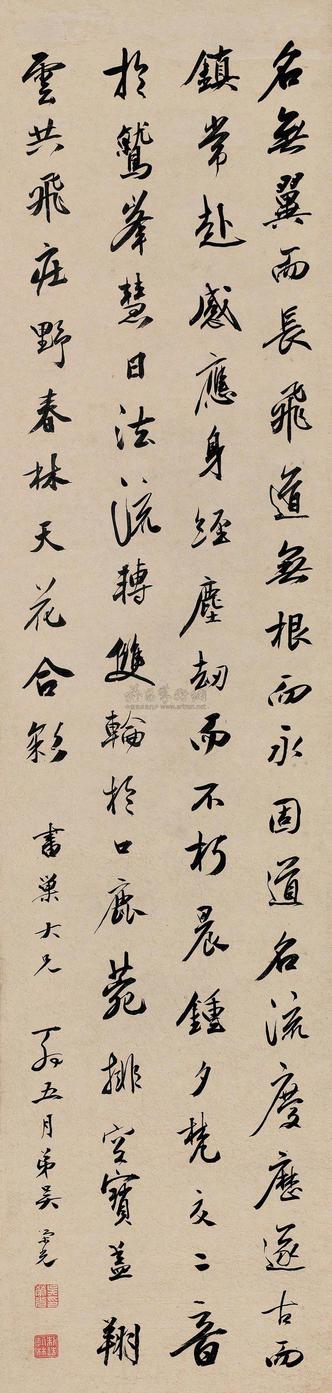 名無翼而長飛道無根而永固道名流慶歷遂古而
鎮常赴感應身經塵劫而不朽晨鍾夕梵交二音
於鷲峯慧日法流轉雙輪於口鹿菀排空寶蓋翔
雲共飛庄野春林天花合彩 書巢大兄 丁酉五月弟吳榮光